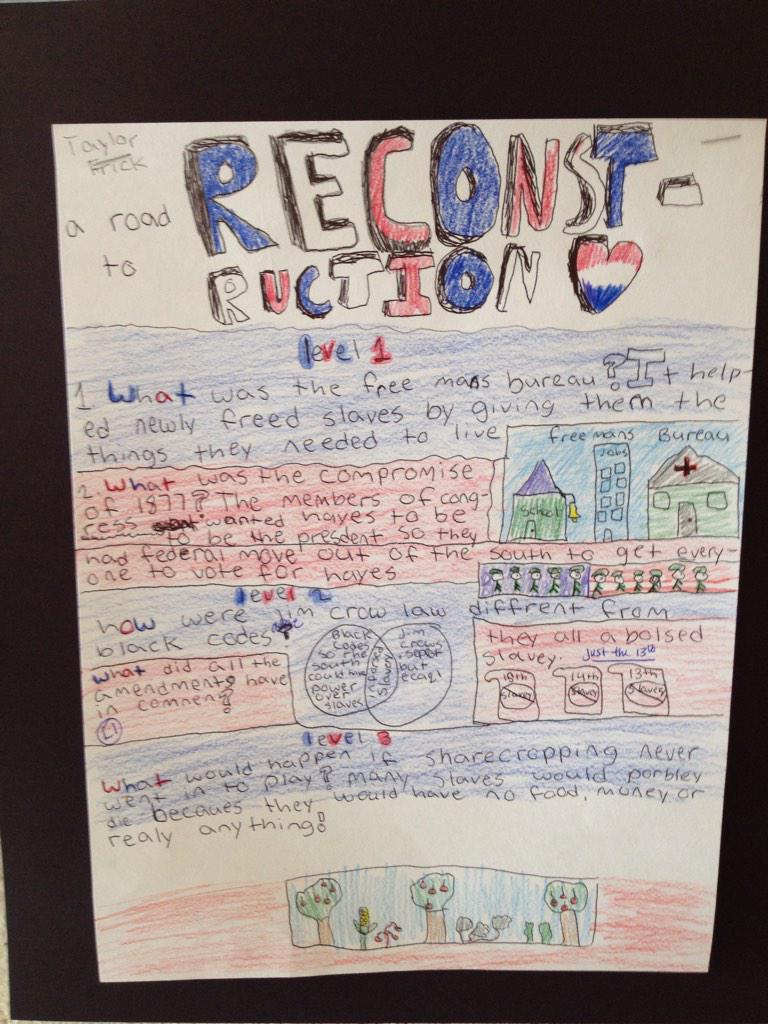 Taylor
Frick
a road
to
RECONST-
RUCTION
level 1
1 What was the free mans bureau? It help-
ed newly freed slaves by giving them the
things they needed to live
freemans Bureau
School
Jobs
2. What was the compromise
of 1877? The members of cong-
ress wanted hayes to be
to be the presdent so they
had federal move out of the south to get every-
one to vote for hayes
level 2
how were Jim crow law diffrent from
black codes?
Black
Codes
so the
south
could have
power
over
slaves
Slavery
Jim
crow
sepret
but
ecaql
What did all the
amendments have
in commen?
they all a bolsed
slavey.
Just the 13th
14th
Slavery
13th
Slavery
level 3
What would happen if sharecropping never
went in to play? many slaves would porbley
die becaues they would have no food, money or
realy anything!